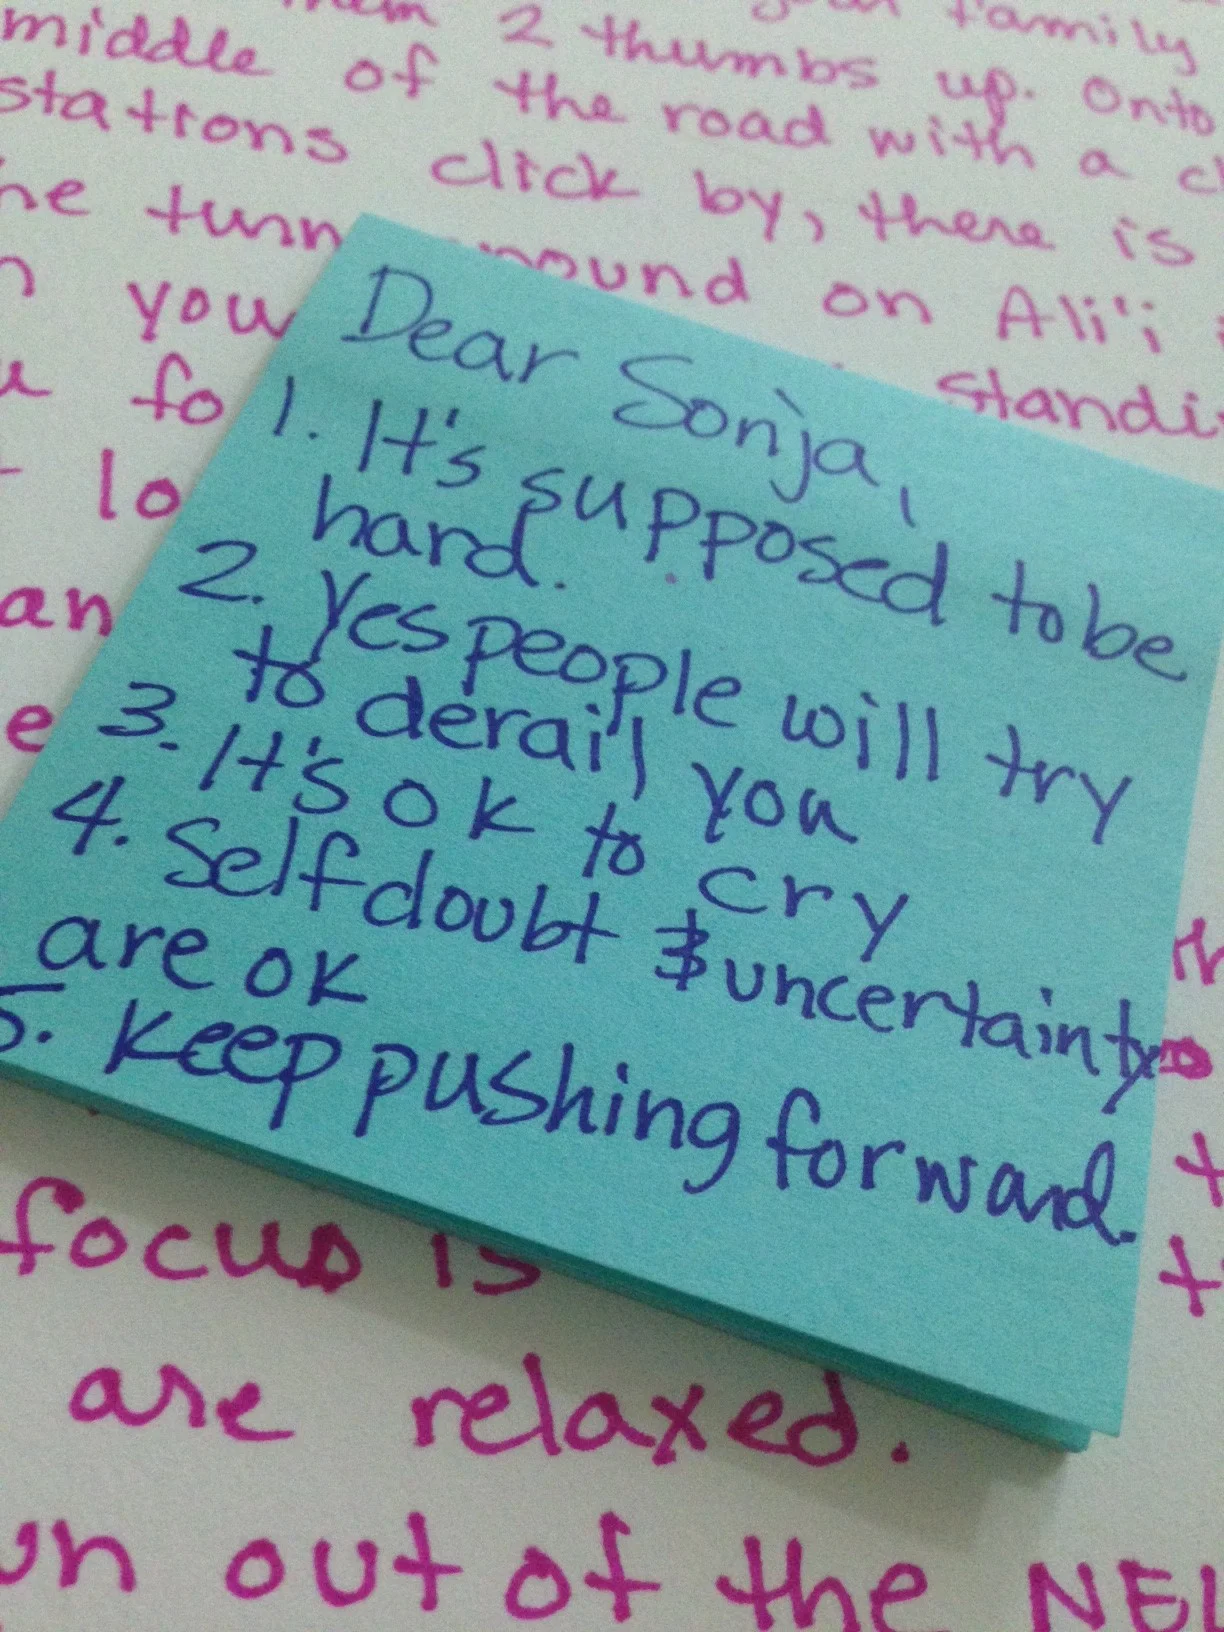 2 thumbs up. Onto
family
middle of the road with a
stations click by, there is
tunn ound on Ali'i
you
fo standi
lo
an
Dear Sonja,
1. It's supposed to be
hard.
2. Yes people will try
to derail you
3. It's ok to cry
4. Self doubt & uncertainty
are ok
5. Keep pushing forward.
focus is
are relaxed.
out of the NEL